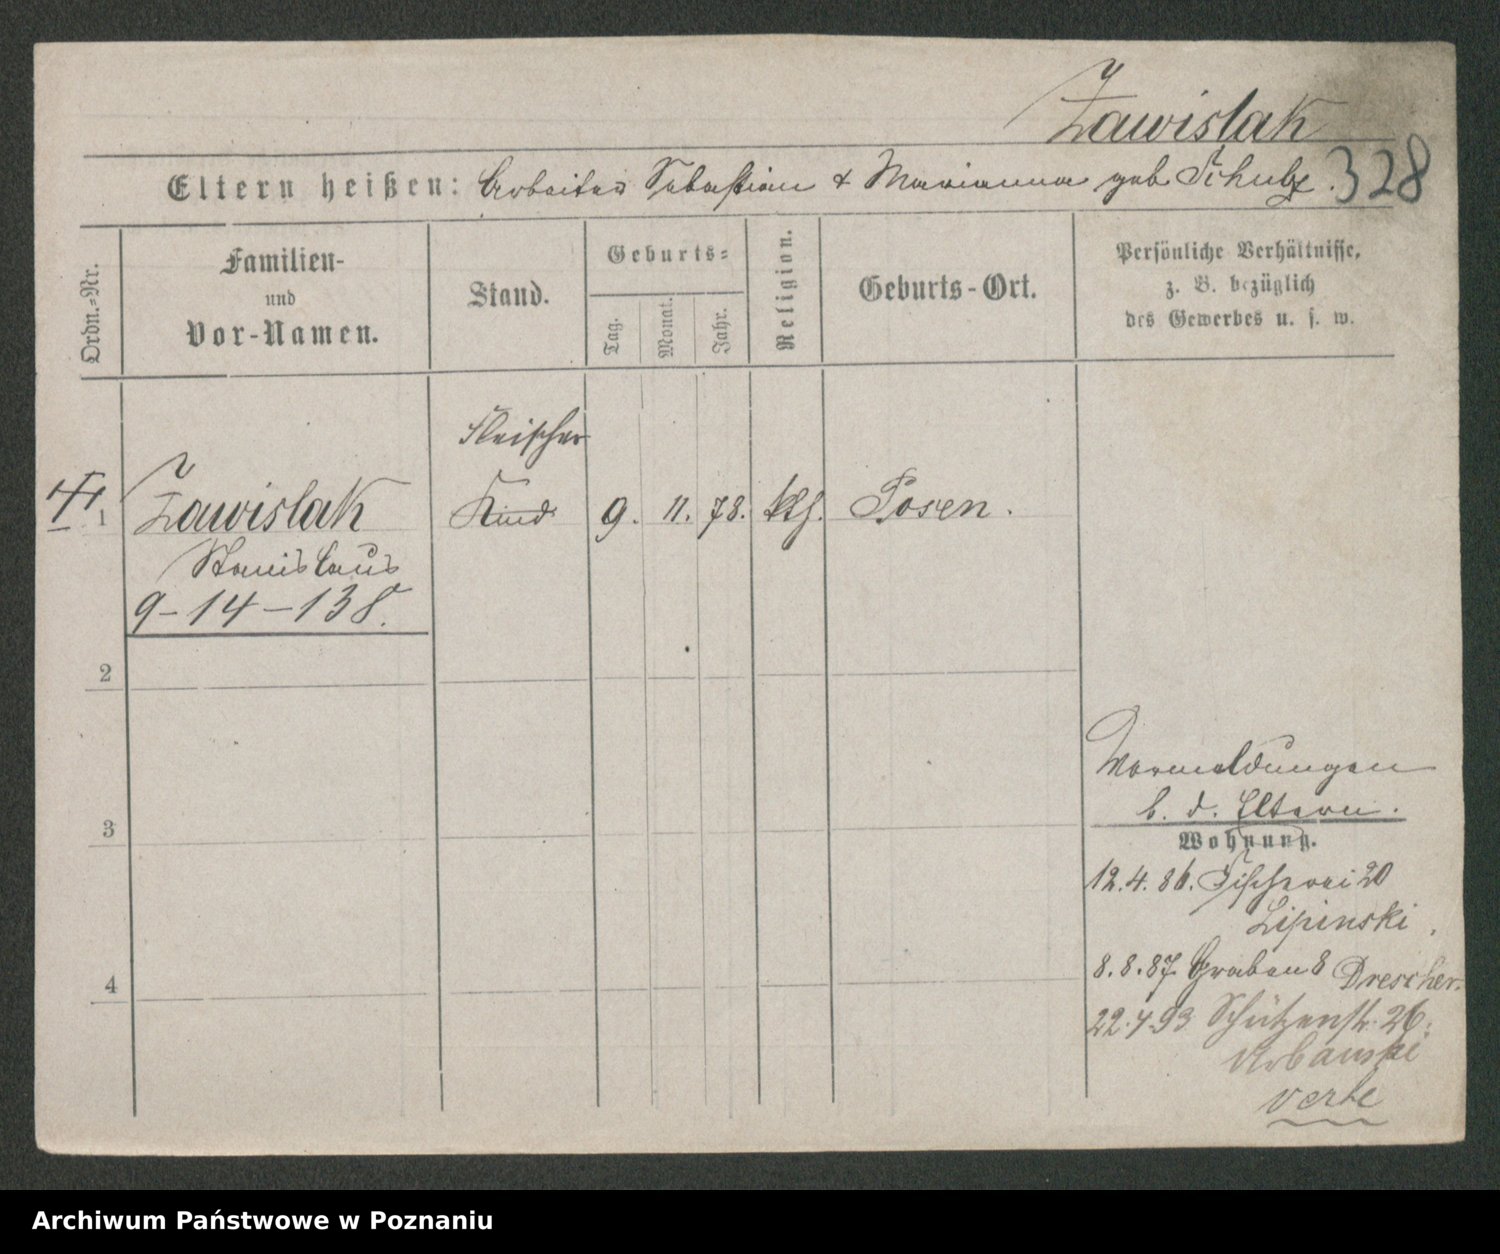 Zawislak
328
Eltern heißen: Arbeiter Sebastian & Marianna geb. Schulz.
Ordn.-Nr.
Familien- und Vor-Namen.
Stand.
Geburts-
Tag.
Monat.
Jahr.
Religion.
Geburts-Ort.
Persönliche Verhältnisse,
z. B. bezüglich
des Gewerbes u. s. w.
Fleischer
1 Zawislak Kind 9. 11. 78. kth. Posen.
Stanislaus
9-14-138.
2
3
4
Vormeldungen
b. d. Eltern.
Wohnung.
12.4.86. Fischerei 20
Lipinski.
8.8.87. Graben 8 Drescher.
22.4.93 Schützenstr. 26.
Urbanski